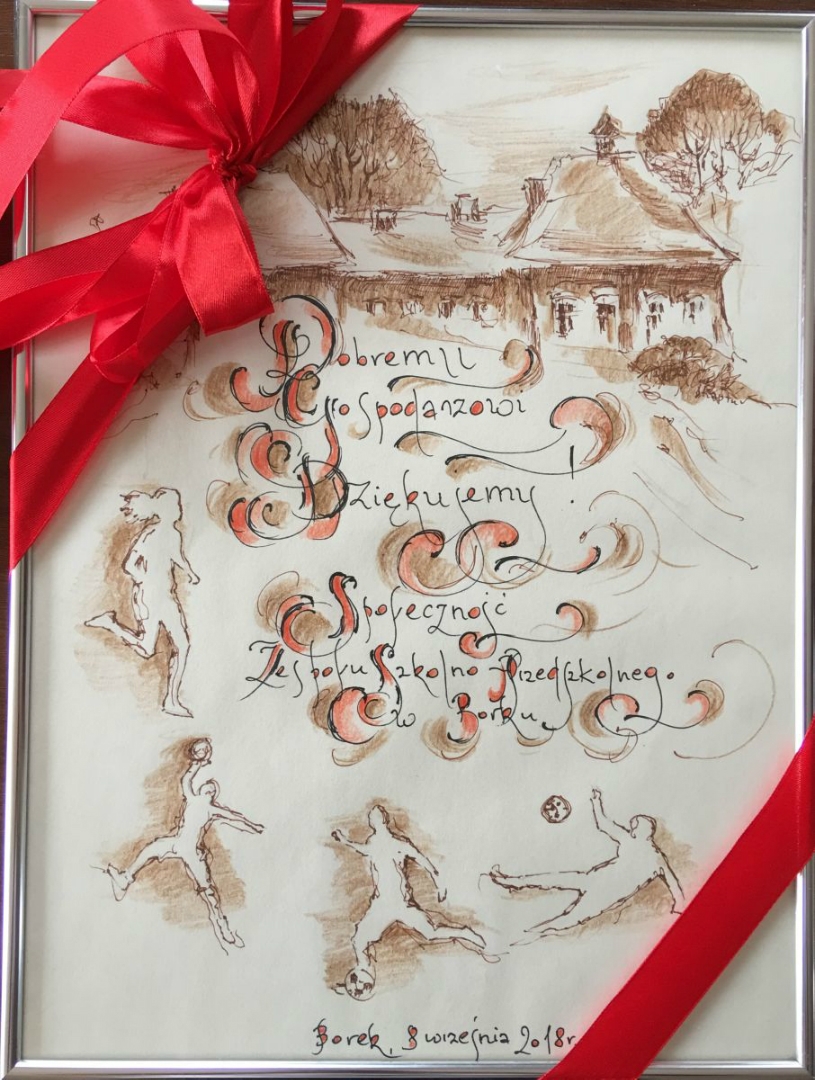 Dobremu
Gospodarzowi
Dziękujemy!
Społeczność
Zespołu Szkolno Przedszkolnego
w Borku
Borek, 8 września 2018r